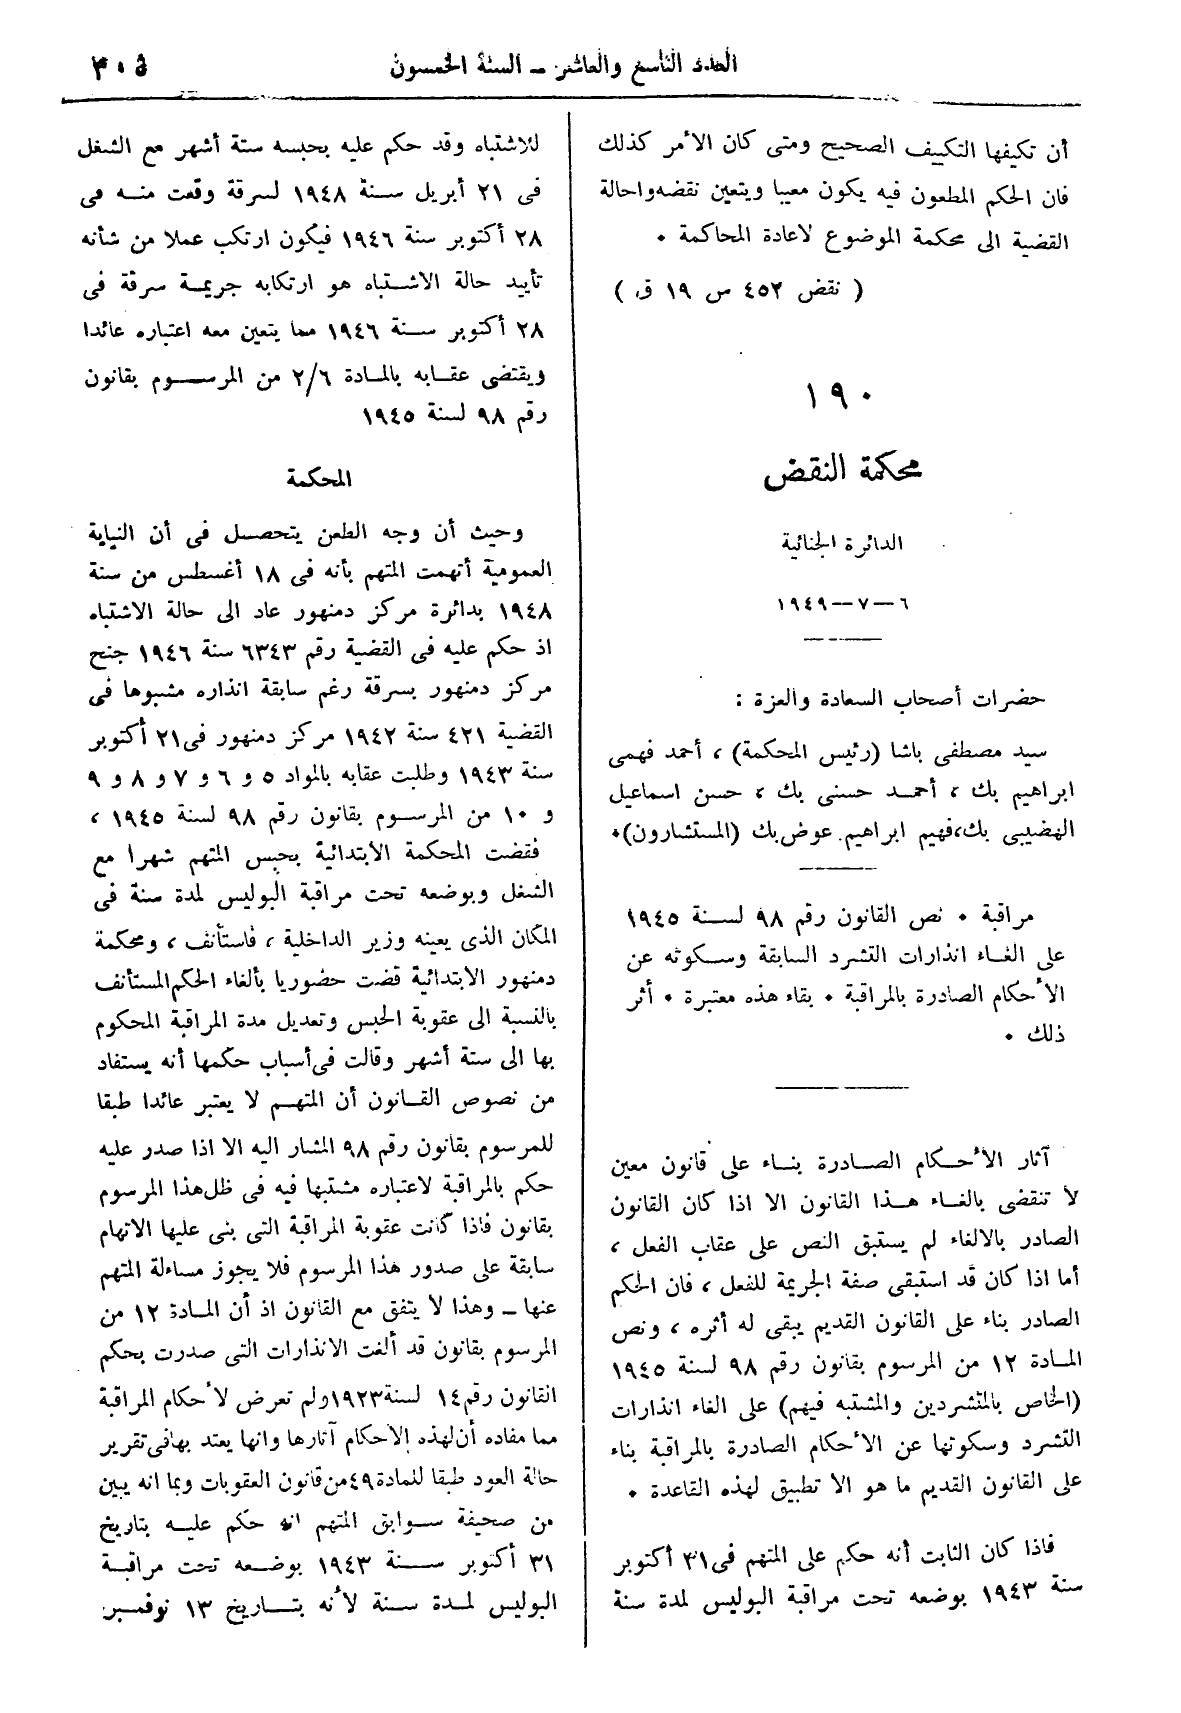 العدد التاسع والعاشر ــ السنة الخمسون
أن تكيفها التكييف الصحيح ومتى كان الأمر كذلك
فان الحكم المطعون فيه يكون معيبا ويتعين نقضه واحالة
القضية الى محكمة الموضوع لاعادة المحاكمة ٠
( نقض ٤٥٢ س ١٩ ق )
١٩٠
محكمة النقض
الدائرة الجنائية
٦ – ٧ – ١٩٤٩
حضرات أصحاب السعادة والعزة :
سيد مصطفى باشا (رئيس المحكمة) ، أحمد فهمى
ابراهيم بك ، أحمد حسنى بك ، حسن اسماعيل
الهضيبى بك، فهيم ابراهيم عوض بك (المستشارون)٠
مراقبة ٠ نص القانون رقم ٩٨ لسنة ١٩٤٥
على الغاء انذارات التشرد السابقة وسكوته عن
الأحكام الصادرة بالمراقبة ٠ بقاء هذه معتبرة ٠ أثر
ذلك ٠
آثار الأحكام الصادرة بناء على قانون معين
لا تنقضى بالغاء هذا القانون الا اذا كان القانون
الصادر بالالغاء لم يستبق النص على عقاب الفعل ،
أما اذا كان قد استبقى صفة الجريمة للفعل ، فان الحكم
الصادر بناء على القانون القديم يبقى له أثره ، ونص
المادة ١٢ من المرسوم بقانون رقم ٩٨ لسنة ١٩٤٥
(الخاص بالمتشردين والمشتبه فيهم) على الغاء انذارات
التشرد وسكوتها عن الأحكام الصادرة بالمراقبة بناء
على القانون القديم ما هو الا تطبيق لهذه القاعدة ٠
فاذا كان الثابت أنه حكم على المتهم فى ٣١ أكتوبر
سنة ١٩٤٣ بوضعه تحت مراقبة البوليس لمدة سنة
للاشتباه وقد حكم عليه بحبسه ستة أشهر مع الشغل
فى ٢١ أبريل سنة ١٩٤٨ لسرقة وقعت منه فى
٢٨ أكتوبر سنة ١٩٤٦ فيكون ارتكب عملا من شأنه
تأييد حالة الاشتباه هو ارتكابه جريمة سرقة فى
٢٨ أكتوبر سنة ١٩٤٦ مما يتعين معه اعتباره عائدا
ويقتضى عقابه بالمادة ٢/٦ من المرسوم بقانون
رقم ٩٨ لسنة ١٩٤٥
المحكمة
وحيث أن وجه الطعن يتحصل فى أن النيابة
العمومية أتهمت المتهم بأنه فى ١٨ أغسطس من سنة
١٩٤٨ بدائرة مركز دمنهور عاد الى حالة الاشتباه
اذ حكم عليه فى القضية رقم ٦٣٤٣ سنة ١٩٤٦ جنح
مركز دمنهور بسرقة رغم سابقة انذاره مشبوها فى
القضية ٤٢١ سنة ١٩٤٢ مركز دمنهور فى ٢١ أكتوبر
سنة ١٩٤٣ وطلبت عقابه بالمواد ٥ و ٦ و ٧ و ٨ و ٩
و ١٠ من المرسوم بقانون رقم ٩٨ لسنة ١٩٤٥ ،
فقضت المحكمة الابتدائية بحبس المتهم شهرا مع
الشغل وبوضعه تحت مراقبة البوليس لمدة سنة فى
المكان الذى يعينه وزير الداخلية ، فاستأنف ، ومحكمة
دمنهور الابتدائية قضت حضوريا بألغاء الحكم المستأنف
بالنسبة الى عقوبة الحبس وتعديل مدة المراقبة المحكوم
بها الى ستة أشهر وقالت فى أسباب حكمها أنه يستفاد
من نصوص القانون أن المتهم لا يعتبر عائدا طبقا
للمرسوم بقانون رقم ٩٨ المشار اليه الا اذا صدر عليه
حكم بالمراقبة لاعتباره مشتبها فيه فى ظل هذا المرسوم
بقانون فاذا كانت عقوبة المراقبة التى بنى عليها الاتهام
سابقة على صدور هذا المرسوم فلا يجوز مساءلة المتهم
عنها ــ وهذا لا يتفق مع القانون اذ أن المادة ١٢ من
المرسوم بقانون قد ألغت الانذارات التى صدرت بحكم
القانون رقم ١٤ لسنة ١٩٢٣ ولم تعرض لأحكام المراقبة
مما مفاده أن لهذه الاحكام آثارها وانها يعتد بها فى تقرير
حالة العود طبقا للمادة ٤٩ من قانون العقوبات وبما انه يبين
من صحيفة سوابق المتهم انه حكم عليه بتاريخ
٣١ أكتوبر سنة ١٩٤٣ بوضعه تحت مراقبة
البوليس لمدة سنة لأنه بتاريخ ١٣ نوفمبر